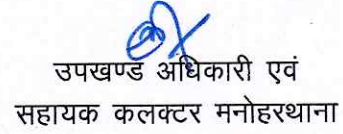 उपखण्ड अधिकारी एवं
सहायक कलक्टर मनोहरथाना